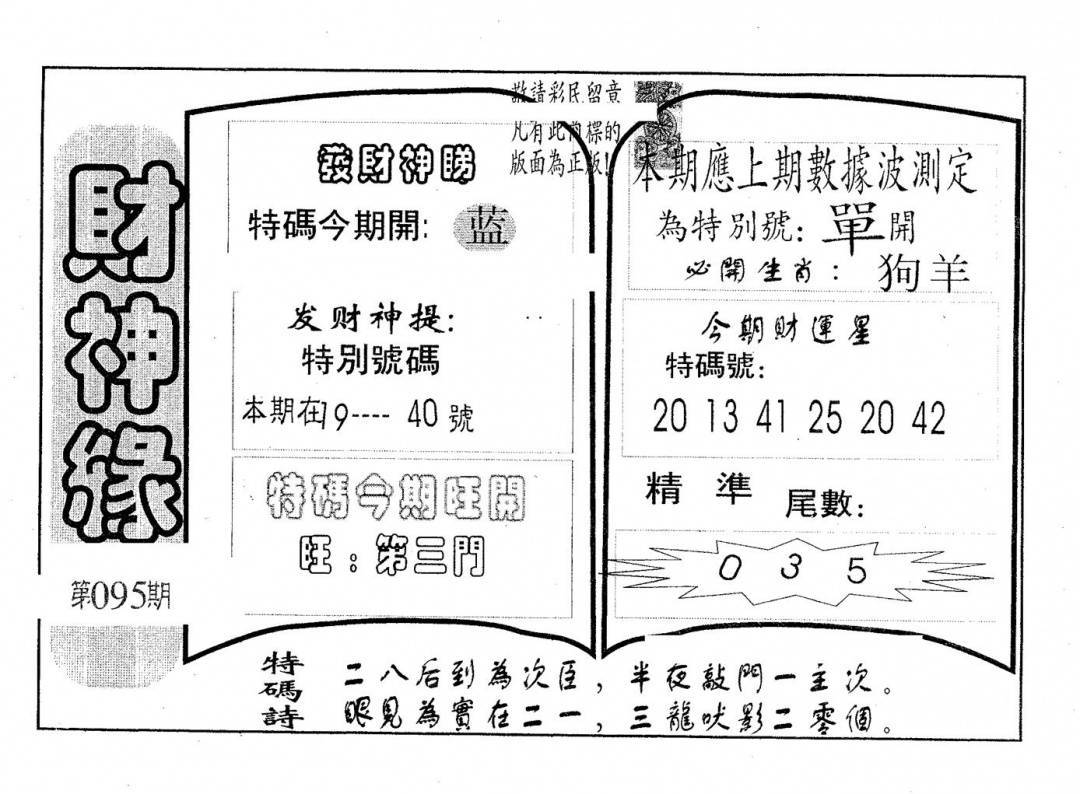 財神緣
第095期
敬請彩民留意
凡有此商標的
版面為正版!
發財神睇
特碼今期開: 藍
发财神提:
特別號碼
本期在19---- 40號
特碼今期旺開
旺:第三門
本期應上期數據波測定
為特別號: 單開
必開生肖: 狗羊
今期財運星
特碼號:
20 13 41 25 20 42
精準 尾數:
0 3 5
特碼詩
二八后到為次臣,半夜敲門一主次。
眼見為實在二一,三龍吠影二零個。